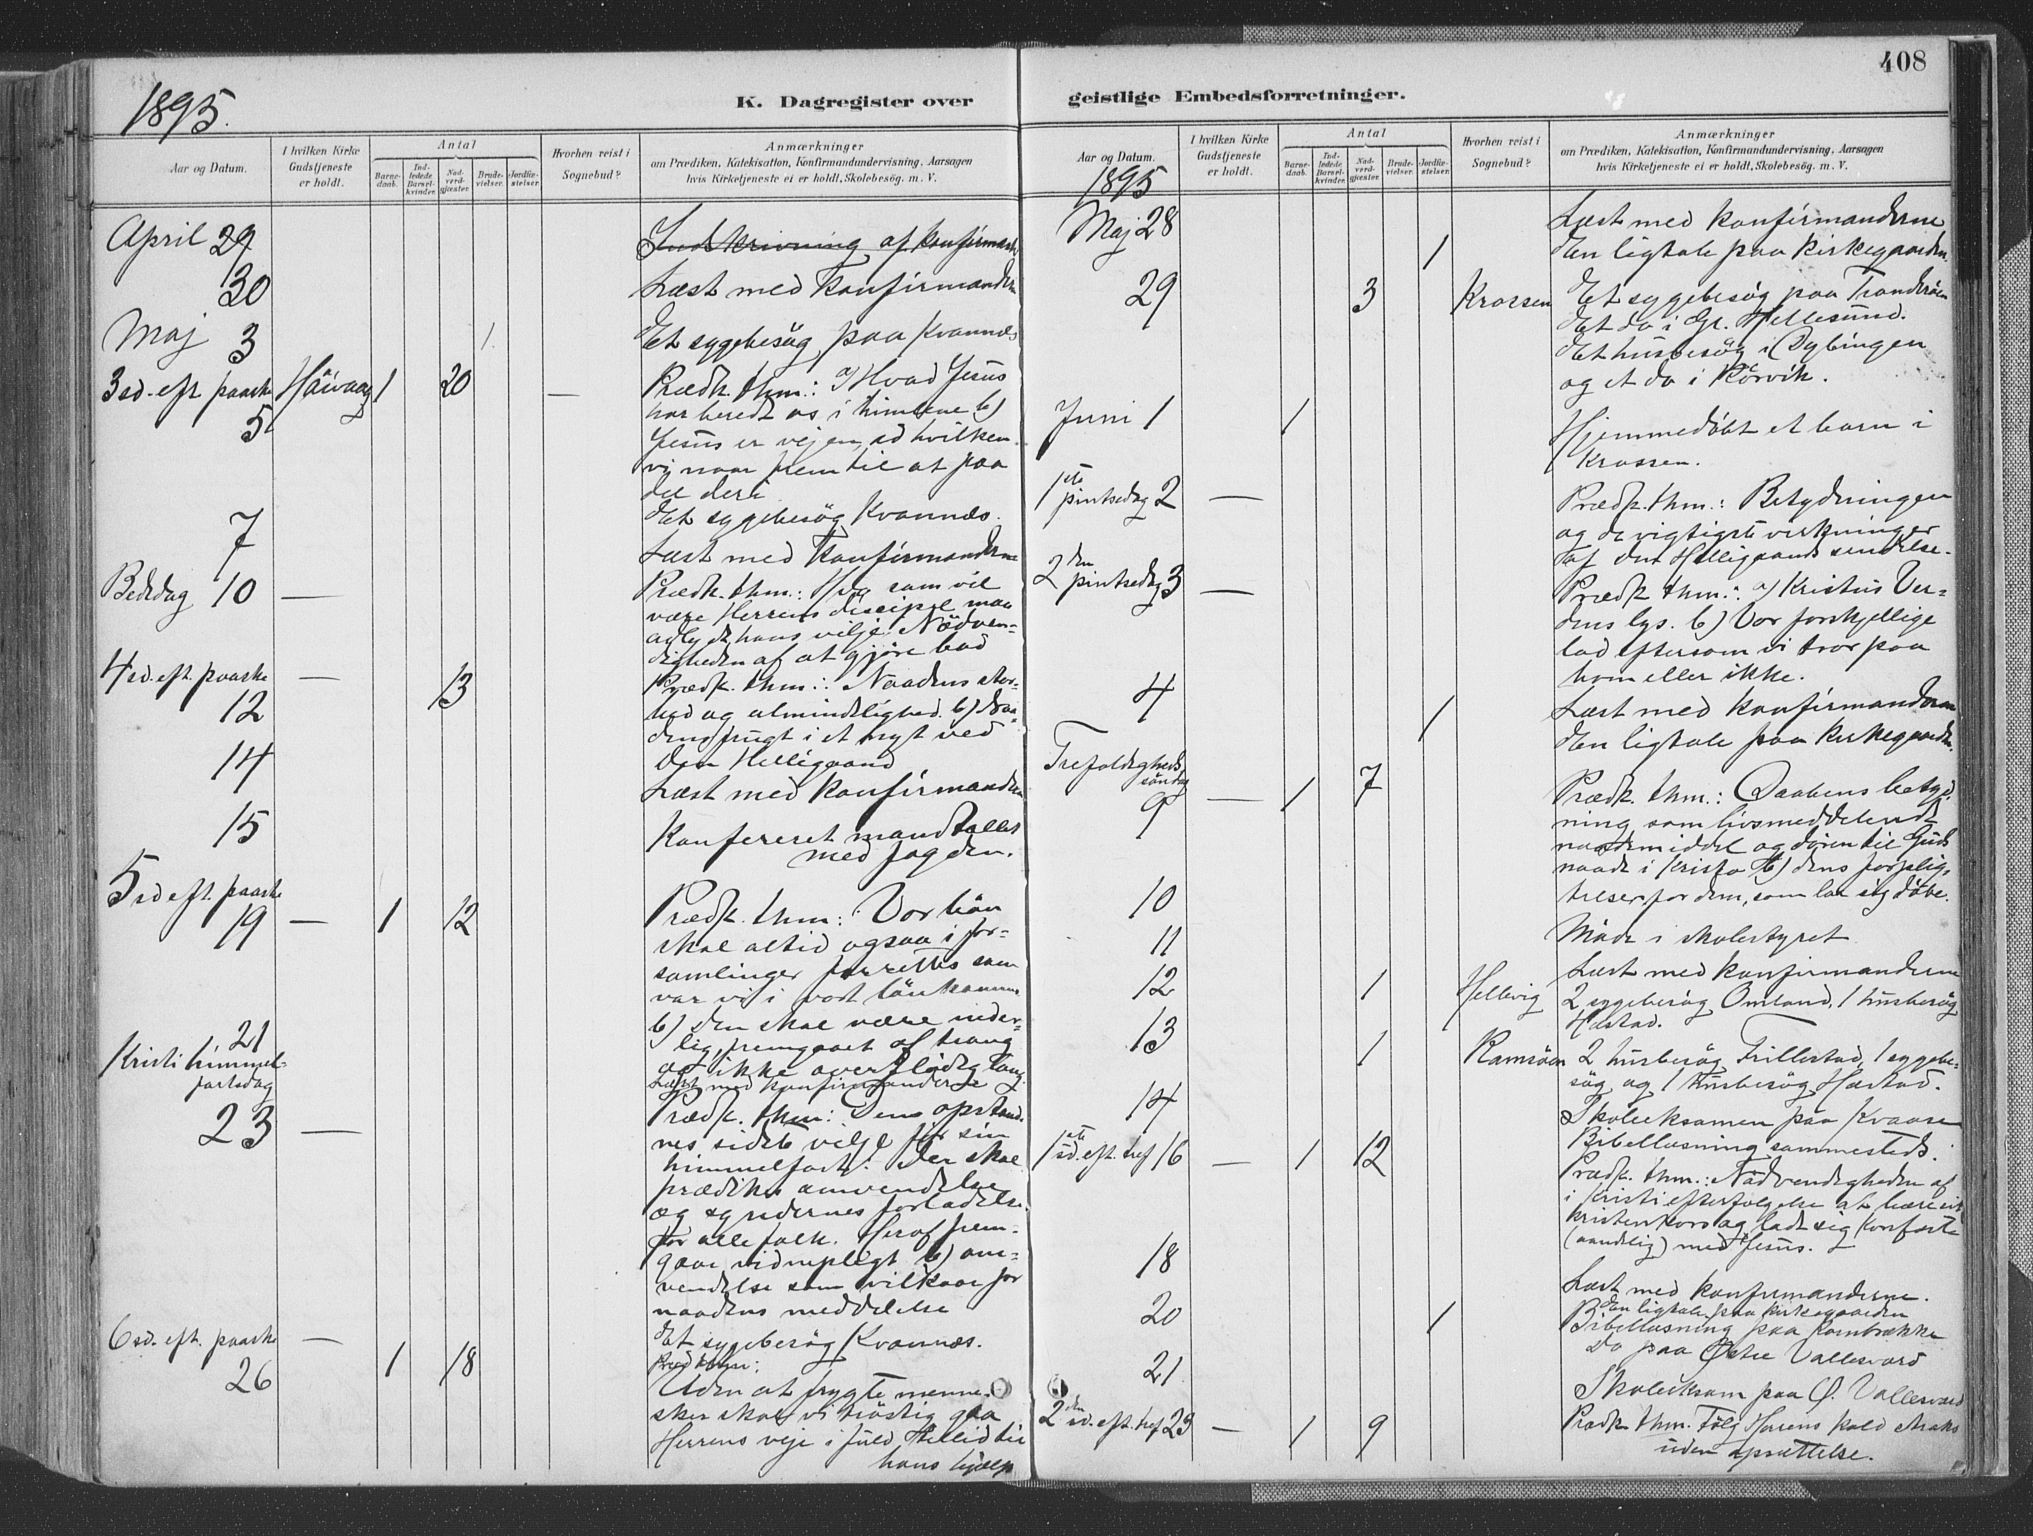 408
1895.
K. Dagregister over geistlige Embedsforretninger.
Aar og Datum.
I hvilken Kirke Gudstjeneste er holdt.
Antal
Barnedaab.
Indledede Barselkvinder.
Nadverdgjester.
Brudevielser.
Jordfæstelser.
Hvorhen reist i Sognebud?
Anmærkninger
om Prædiken, Katekisation, Konfirmandundervisning, Aarsagen
hvis Kirketjeneste ei er holdt, Skolebesög. m. V.
April 29 Indskrivning af konfirmander
30 Læst med konfirmanderne
Maj 3 Et sygebesög paa Kvannæs
3 sd. eft paaske Häivaag 1 20 — Prædk. thm.: a) Hvad Jesus
5 har beredt os i himlene b)
Jesus er vejen, ad hvilken
vi naar frem til at faa
del deri
Et sygebesög Kvannæs.
7 Læst med konfirmanderne
Bededag 10 — Prædk. thm.: Hvo som vil
være Herrens discipel maa
adlyde hans vilje. Nödven-
digheden af at gjöre bod
4 sd. eft. paaske — 13 Prædk. thm.: Naadens stor-
12 hed og almindelighed. b) Naa-
dens frugt i et nyt ved
Den Helligaand
14 Læst med konfirmanderne
15 Konfereret mandtallet
med fogden.
5 sd eft. paaske
19 — 1 12 Prædk. thm: Vor bön
skal altid ogsaa i for-
samlinger forrettes som
var vi i vort lönkammer
b) Den skal være inder-
lig, fremgaaet af trang
og ikke overflödig lang.
21 Læst med konfirmanderne
Kristi himmel-
fartsdag
23 — Prædk. thm: Den opstand-
nes sidste vilje för sin
himmelfart: Der skal
prædikes omvendelse
og syndernes forladelse
for alle folk. Heraf frem-
gaar vidnepligt b) om-
vendelse som vilkaar for
naadens meddelelse
Et sygebesög Kvannæs.
6 sd. eft. paaske —
26 1 18 Præd thm:
Uden at frygte menne-
sker skal vi tröstig gaa
Herrens veje i fuld tillid til
hans hjælp
Aar og Datum.
I hvilken Kirke Gudstjeneste er holdt.
Antal
Barnedaab.
Indledede Barselkvinder.
Nadverdgjester.
Brudevielser.
Jordfæstelser.
Hvorhen reist i Sognebud?
Anmærkninger
om Prædiken, Katekisation, Konfirmandundervisning, Aarsagen
hvis Kirketjeneste ei er holdt, Skolebesög. m. V.
1895
Maj 28 Læst med konfirmanderne
1 En ligtale paa kirkegaarden.
29 3 Krossen Et sygebesög paa Trandöen
Et do i Gr. Hellesund.
Et husbesög i Dybingen
og et do i Körvik.
Juni 1 1 Hjemmedöbt et barn i
Krossen.
1ste pintsedag 2 — Prædk. thm.: Betydningen
og de vigtigste virkninger
af den Helligaands sendelse.
2den pintsedag 3 — Prædk thm.: a) Kristus Ver-
dens lys. b) Vor forskjellige
lod eftersom vi tror paa
ham eller ikke.
4 Læst med konfirmanderne
1 En ligtale paa kirkegaarden.
Trefoldigheds
söndag
9 — 1 7 Prædk. thm.: Daabens betyd-
ning som livsmeddelende
naademiddel og dören til Guds
naade i Kristo b) dens forplig-
telser for dem, som lar sig döbe.
10 Möde i skolestyret
11 Læst med konfirmanderne
12 1 Hellevig 2 sygebesög Omland, 1 husbesög
Hæstad.
13 1 Ramsöen 2 husbesög Trillestad, 1 sygebe-
sög og 1 husbesög Hæstad.
14 Skoleeksamen paa Kvaase
Bibellæsning sammesteds.
1ste sd. eft. tref 16 — 1 12 Prædk. thm.: Nödvendigheden af
i Kristi efterfölgelse at bære sit
kristenkors og lade sig korsfæste
(aandelig) med Jesus.
18 Læst med konfirmanderne.
1 En ligtale paa kirkegaarden
20 Bibellæsning paa Kornbrække
Do paa Östre Vallesverd
21 Skoleeksam paa Ö. Vallesverd
2den sd. eft. tref 23 — 1 9 Prædk thm. Fölg Herrens kald straks
uden opsættelse.